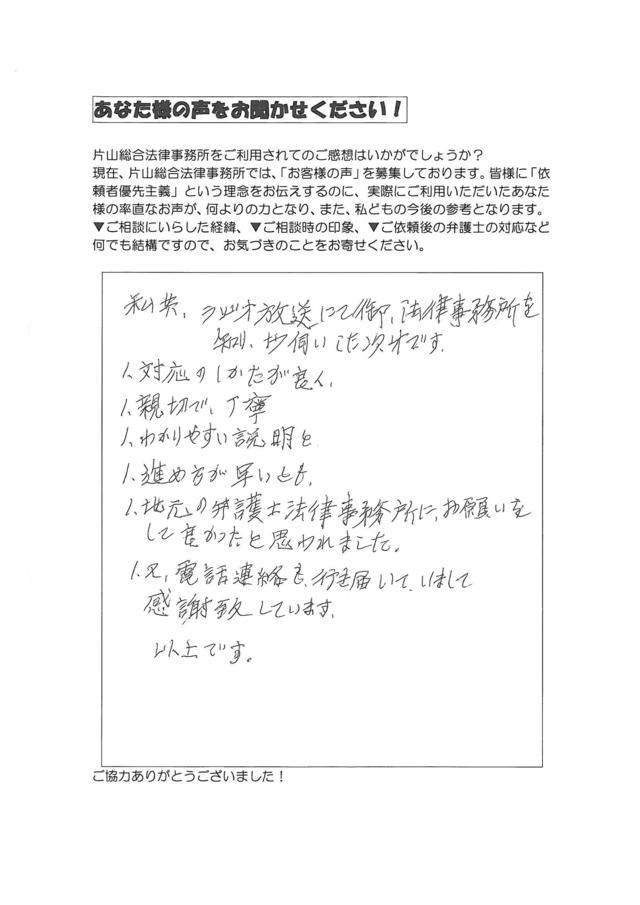 あなた様の声をお聞かせください!
片山総合法律事務所をご利用されてのご感想はいかがでしょうか?
現在、片山総合法律事務所では、「お客様の声」を募集しております。皆様に「依
頼者優先主義」という理念をお伝えするのに、実際にご利用いただいたあなた
様の率直なお声が、何よりの力となり、また、私どもの今後の参考となります。
▼ご相談にいらした経緯、▼ご相談時の印象、▼ご依頼後の弁護士の対応など
何でも結構ですので、お気づきのことをお寄せください。
私共、ラジオ放送にて御、法律事務所を
知り、お伺いした次才です。
1、対応のしかたが良く、
1、親切で、丁寧
1、わかりやすい説明と
1、進め方が早いとも、
1、地元の弁護士法律事務所に、お願いを
して良かったと思われました。
1、又、電話連絡も、行き届いて、いまして
感謝致しています。
以上です。
ご協力ありがとうございました!